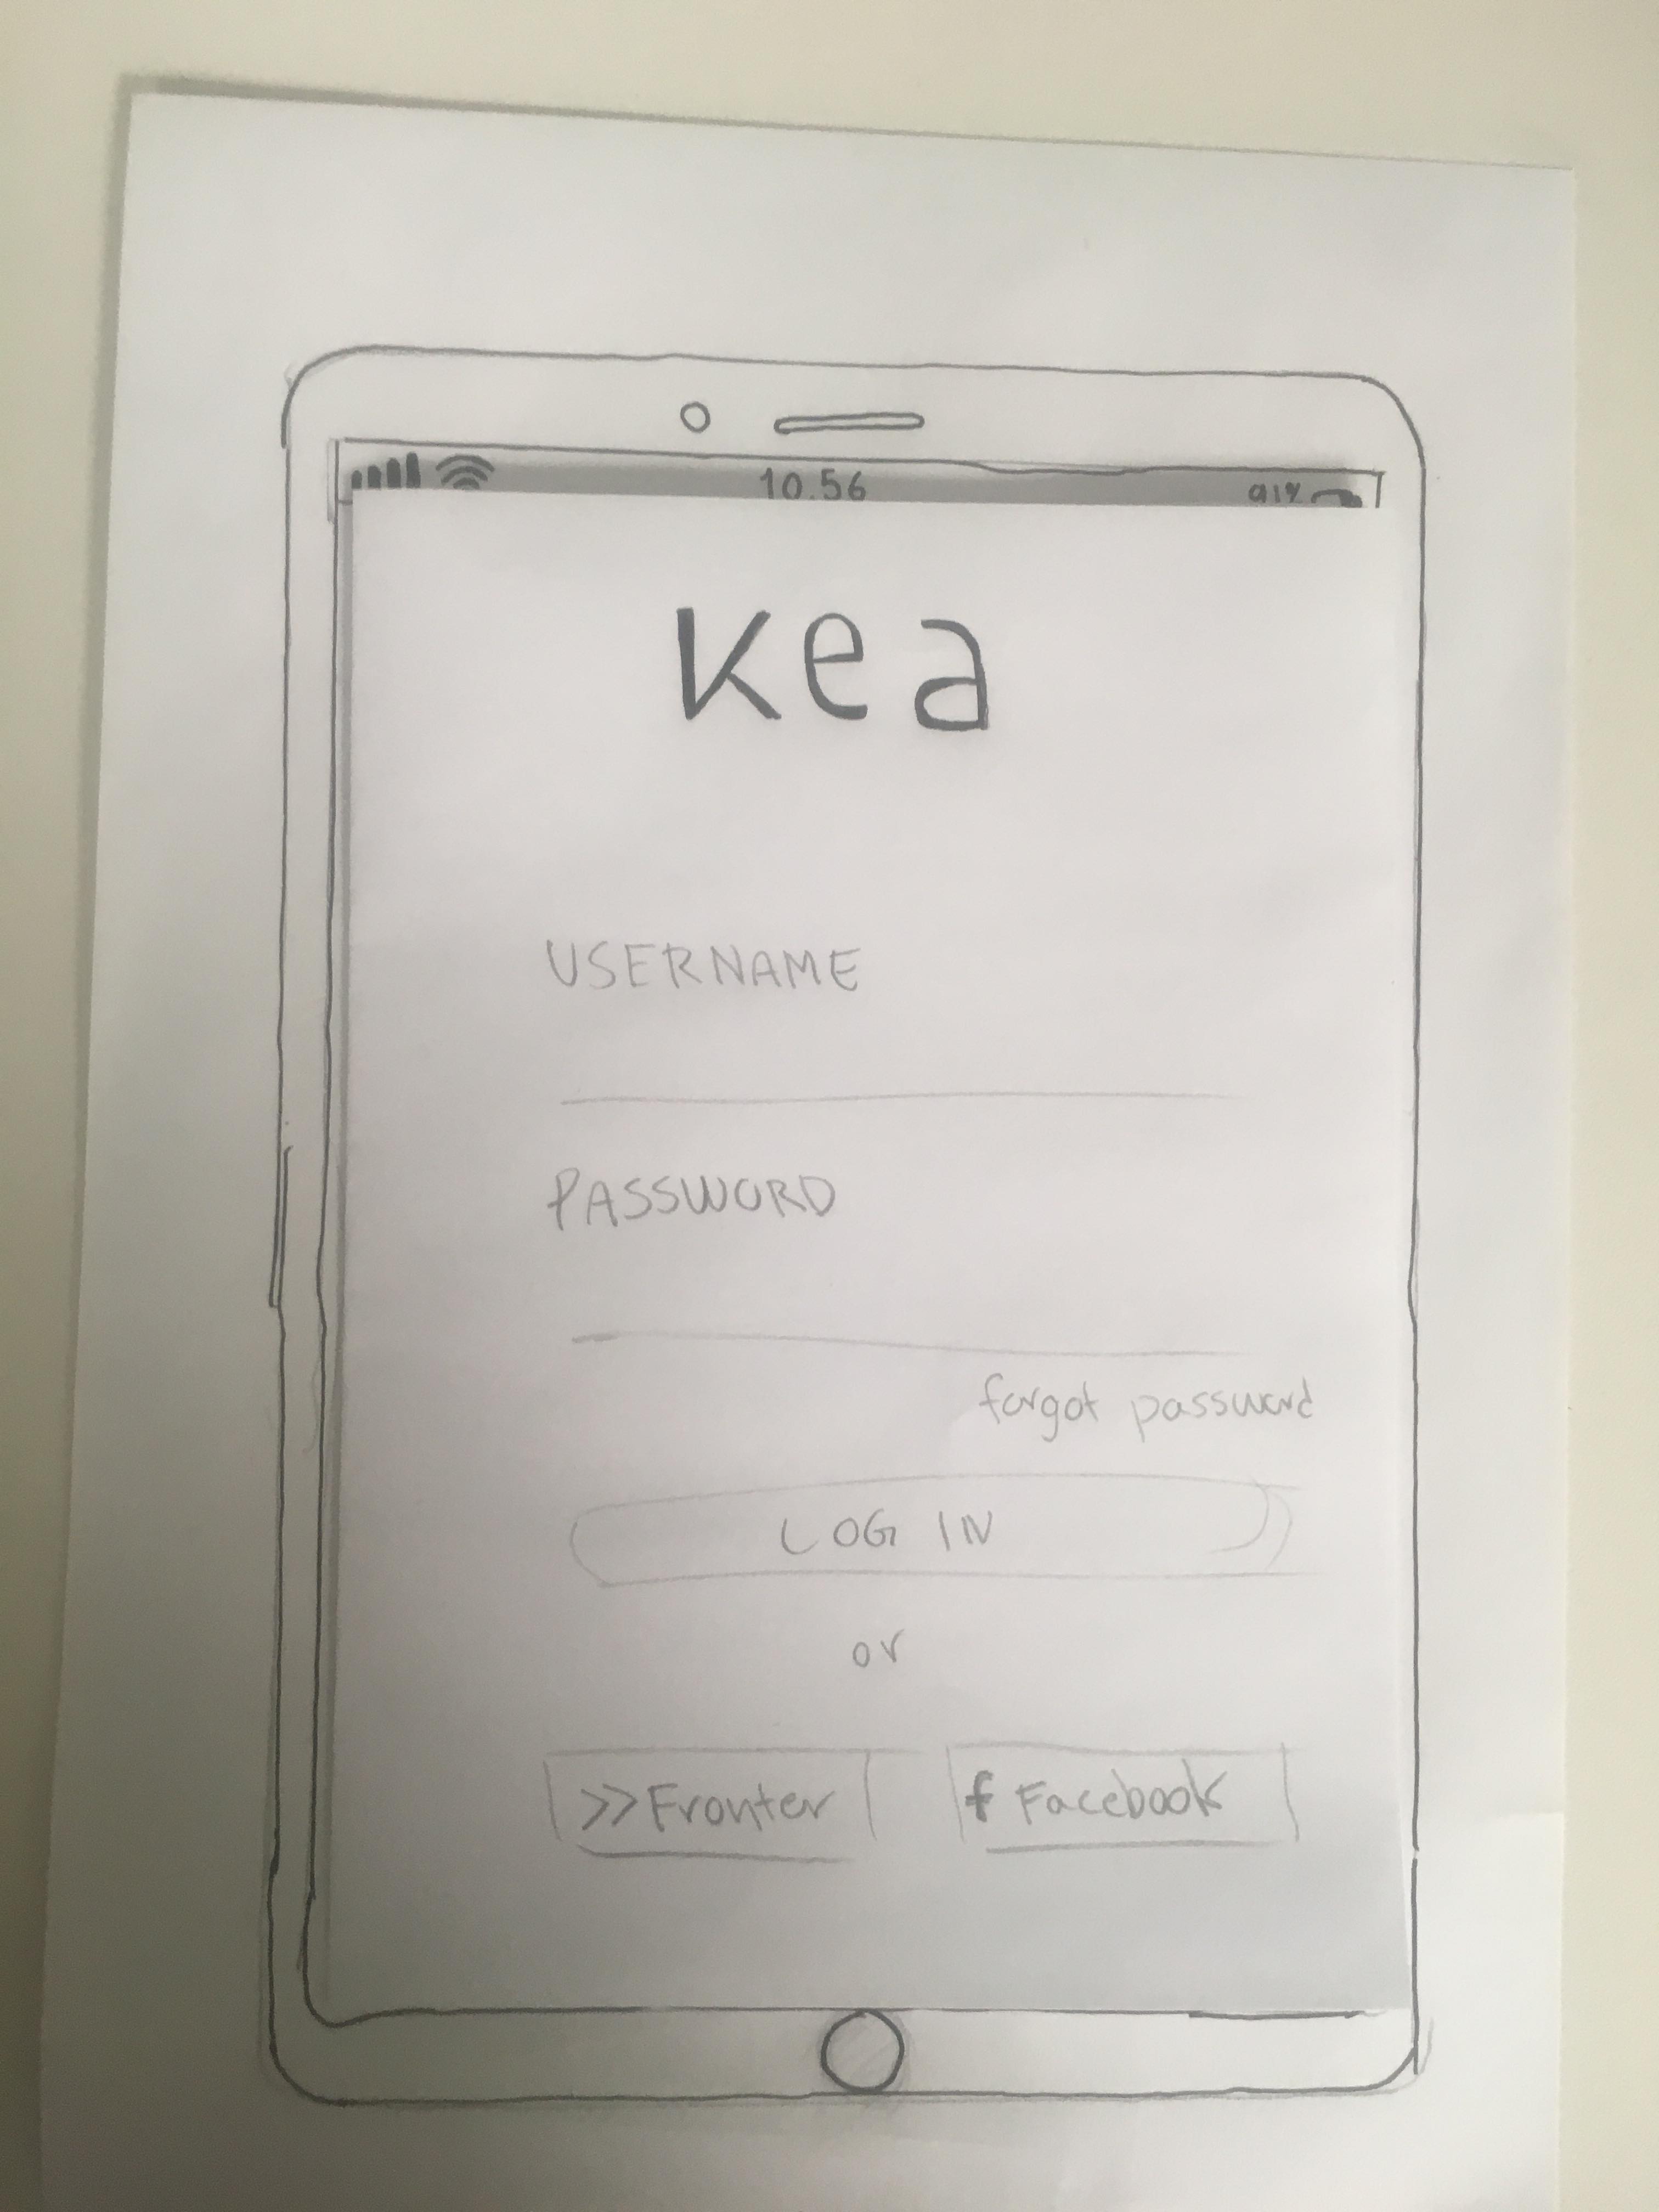 10.56 91%
kea
USERNAME
PASSWORD
forgot password
LOG IN
or
>>Fronter f Facebook